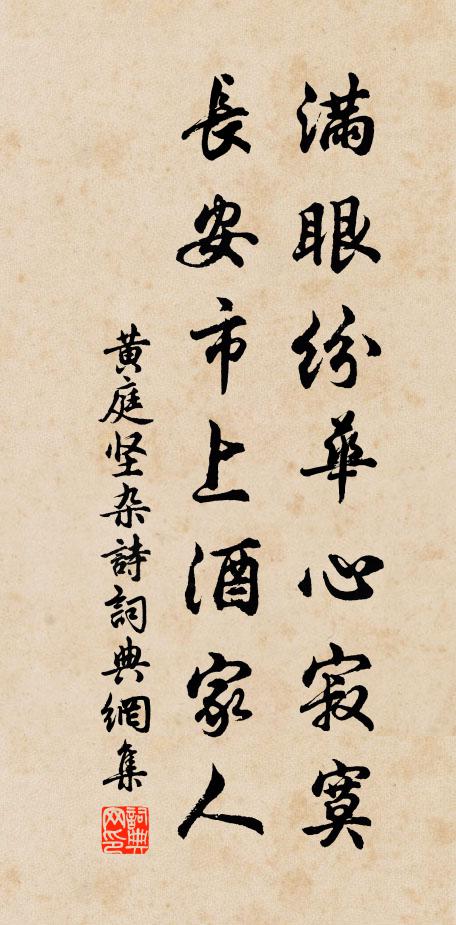 滿眼紛華心寂寞
長安市上酒家人
黃庭坚杂詩詞典網集
詞典網印